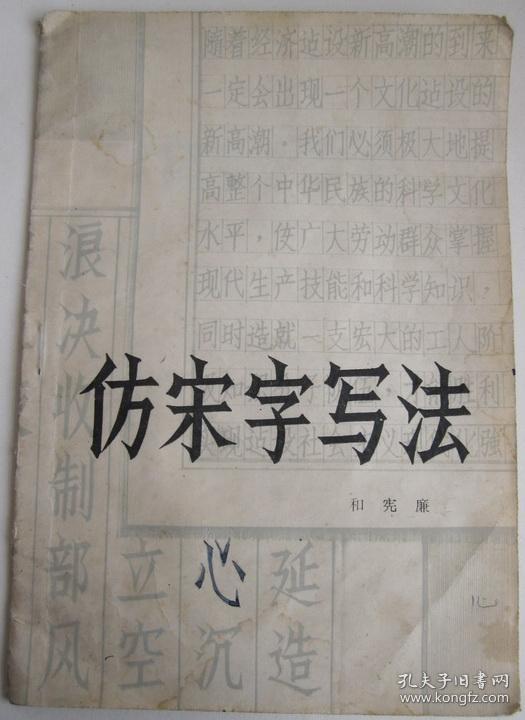 随着经济迠设新高潮的到来
一定会出现一个文化迠设的
新高潮。我们必须极大地提
高整个中华民族的科学文化
水平，使广大劳动群众掌握
现代生产技能和科学知识，
同时造就一支宏大的工人阶
利
现 社会 义 强
仿宋字写法
和宪廉
浪决收制部风
立空
心沉
延造
心
孔夫子旧书网
www.kongfz.com